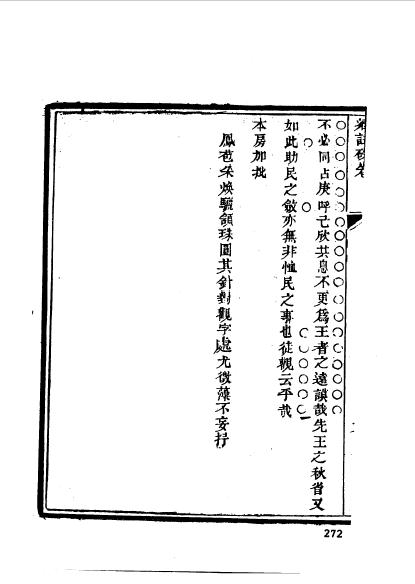 不必同占庚呼己欣共息不更爲王者之遠謨哉先王之秋省又
如此助民之斂亦無非恤民之事也徒觀云乎哉
本房加批
鳳苞采煥驪頷珠圓其針對觀字處尤徵藻不妄抒
272